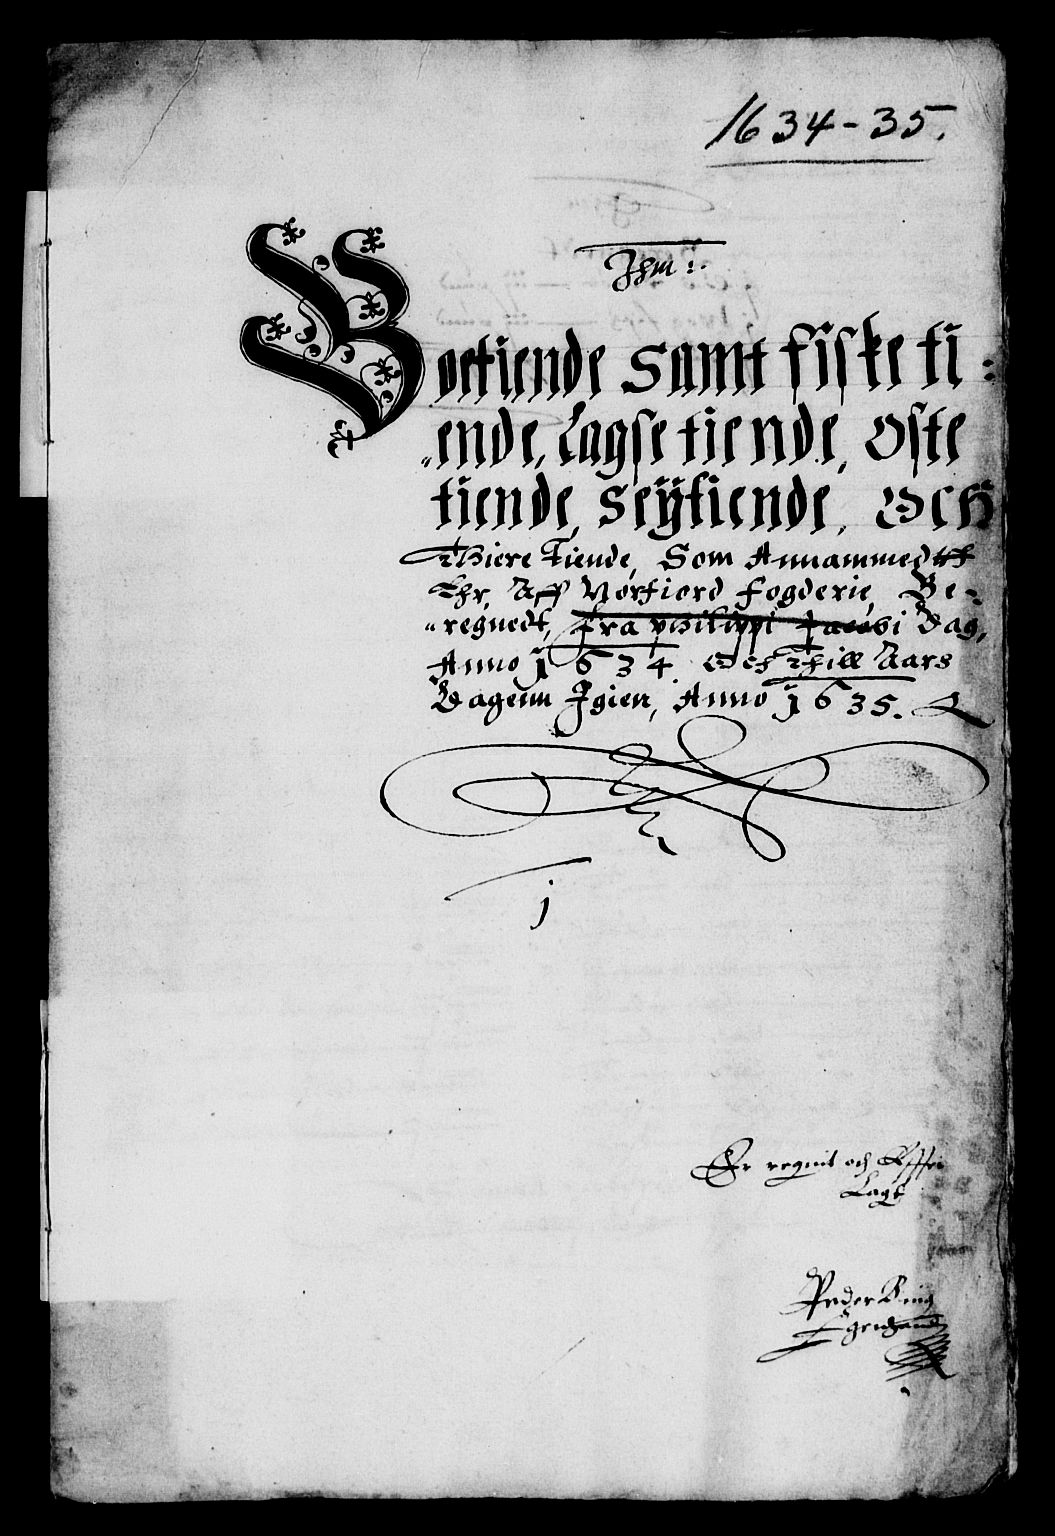 1634-35.
Jhm:.
Boetiende Samt fiske ti:
"ende, Lagse tiende, Oste
tiende, Seÿtiende, Och
Thiere Tiende, Som Annammed
Ehr, Aff Norfiord fogderie, Be-
"regnedt, fra Philippi Jacobi Dag,
Anno 1634. Och Thill Aars
Dagenn Jgien, Anno 1635.
j
Er regnit och
Lagt
Peder
Egenhand